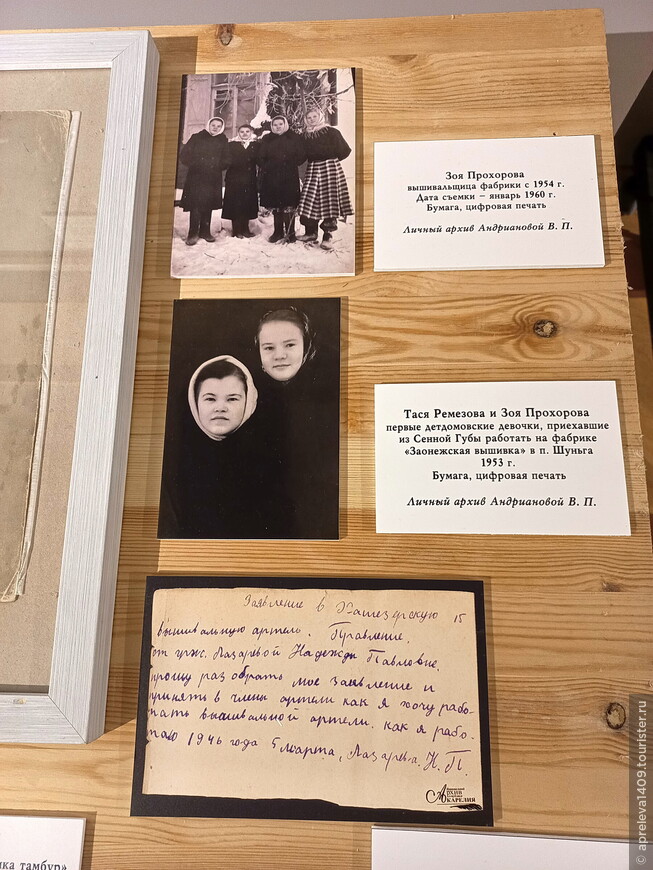 Зоя Прохорова
вышивальщица фабрики с 1954 г.
Дата съемки – январь 1960 г.
Бумага, цифровая печать
Личный архив Андриановой В. П.
Тася Ремезова и Зоя Прохорова
первые детдомовские девочки, приехавшие
из Сенной Губы работать на фабрике
«Заонежская вышивка» в п. Шуньга
1953 г.
Бумага, цифровая печать
Личный архив Андриановой В. П.
Заявление в 15
вышивальную артель. Правление.
от граж. Лазаревой Надежды Павловне.
прошу раз обрать мое заявление и
принять в члены артели как я хочу рабо-
тать вышивальной артели. как я рабо-
таю 1946 года 5 марта, Лазарева. Н. П.
АРХИВ
КАРЕЛИЯ
ка тамбур»
© apreleva1409.tourister.ru